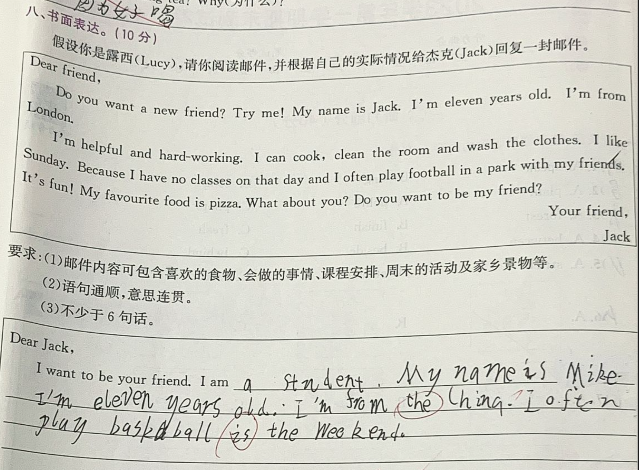 因为女子喝
tea? Why(为什么)?
八、书面表达。(10 分)
假设你是露西(Lucy),请你阅读邮件,并根据自己的实际情况给杰克(Jack)回复一封邮件。
Dear friend,
Do you want a new friend? Try me! My name is Jack. I'm eleven years old. I'm from
London.
I'm helpful and hard-working. I can cook, clean the room and wash the clothes. I like
Sunday. Because I have no classes on that day and I often play football in a park with my friends.
It's fun! My favourite food is pizza. What about you? Do you want to be my friend?
Your friend,
Jack
要求:(1)邮件内容可包含喜欢的食物、会做的事情、课程安排、周末的活动及家乡景物等。
(2)语句通顺,意思连贯。
(3)不少于 6 句话。
Dear Jack,
I want to be your friend. I am a student. My name is Mike.
I'm eleven years old. I'm from the China. I often
play basketball is the weekend.